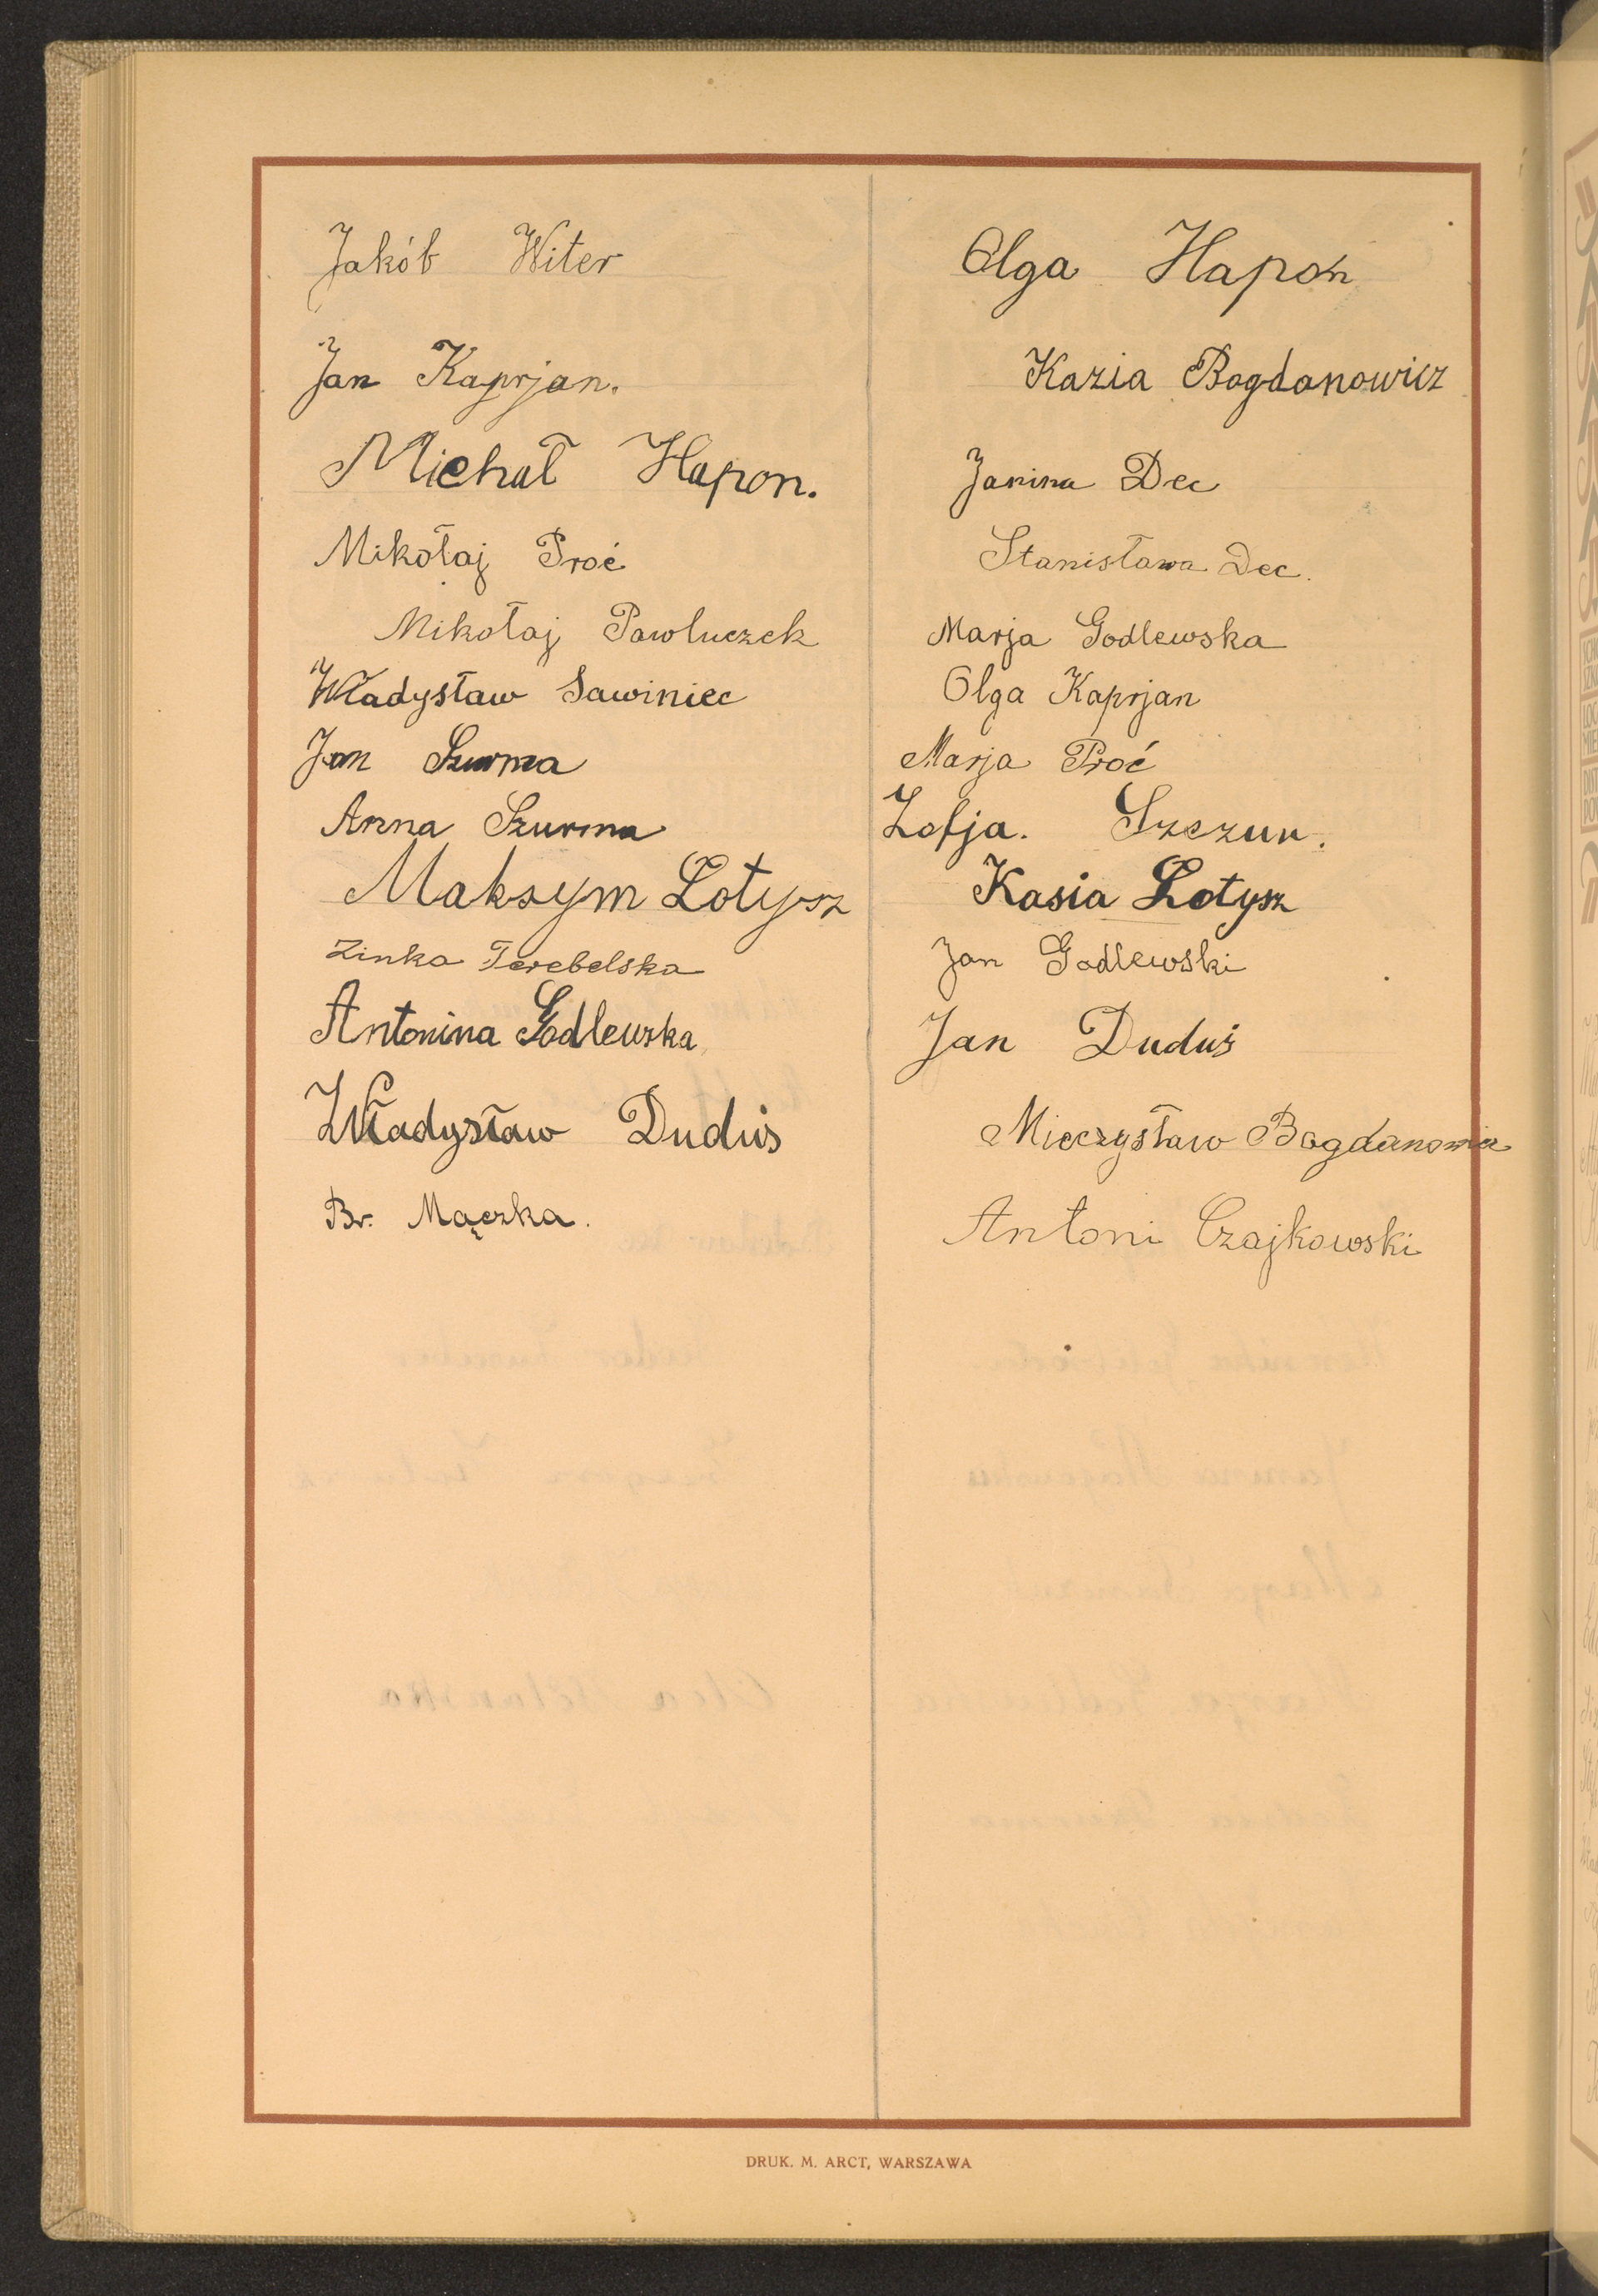 Jakób Witer
Jan Kaprjan.
Michał Hapon.
Mikołaj Proć
Mikołaj Pawluczek
Władysław Sawiniec
Jan Szurma
Anna Szurma
Maksym Łotysz
Zinka Terebelska
Antonina Godlewska
Władysław Duduś
Br. Mączka.
Olga Hapon
Kazia Bogdanowicz
Janina Dec
Stanisława Dec.
Marja Godlewska
Olga Kaprjan
Marja Proć
Zofja. Szczur.
Kasia Łotysz
Jan Godlewski
Jan Duduś
Mieczysław Bogdanowicz
Antoni Czajkowski
DRUK. M. ARCT, WARSZAWA